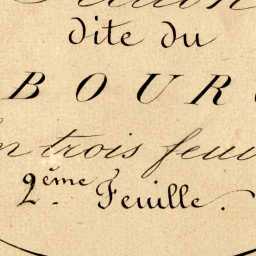 dite du
BOURG
en trois feui
2ème Feuille.